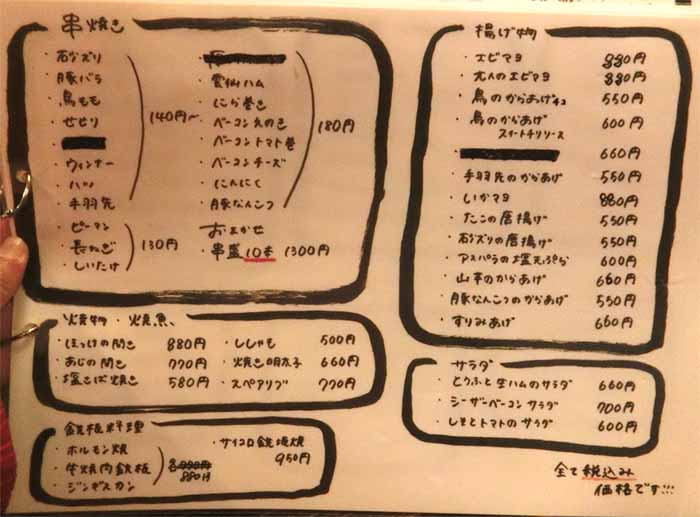 串焼き
・砂ズリ
・豚バラ
・鳥もも
・せせり
・ウィンナー
・ハツ
・手羽先
140円〜
・ピーマン
・長ねぎ
・しいたけ
130円
・雲仙ハム
・にら巻き
・ベーコンえのき
・ベーコントマト巻
・ベーコンチーズ
・にんにく
・豚なんこつ
180円
おまかせ
・串盛10本 1300円
焼物・焼魚
・ほっけの開き 880円
・あじの開き 770円
・塩さば焼き 580円
・ししゃも 500円
・焼き明太子 660円
・スペアリブ 770円
鉄板料理
・ホルモン焼
・牛焼肉鉄板
・ジンギスカン
各990円
880円
・サイコロ鉄板焼
950円
揚げ物
・エビマヨ 880円
・大人のエビマヨ 880円
・鳥のからあげ 550円
・鳥のからあげ 600円
スイートチリソース
660円
・手羽先のからあげ 550円
・いかマヨ 880円
・たこの唐揚げ 550円
・砂ズリの唐揚げ 550円
・アスパラの塩天ぷら 600円
・山芋のからあげ 660円
・豚なんこつのからあげ 550円
・すりみあげ 660円
サラダ
・とうふと生ハムのサラダ 660円
・シーザーベーコンサラダ 700円
・しそとトマトのサラダ 600円
全て税込み
価格です!!!